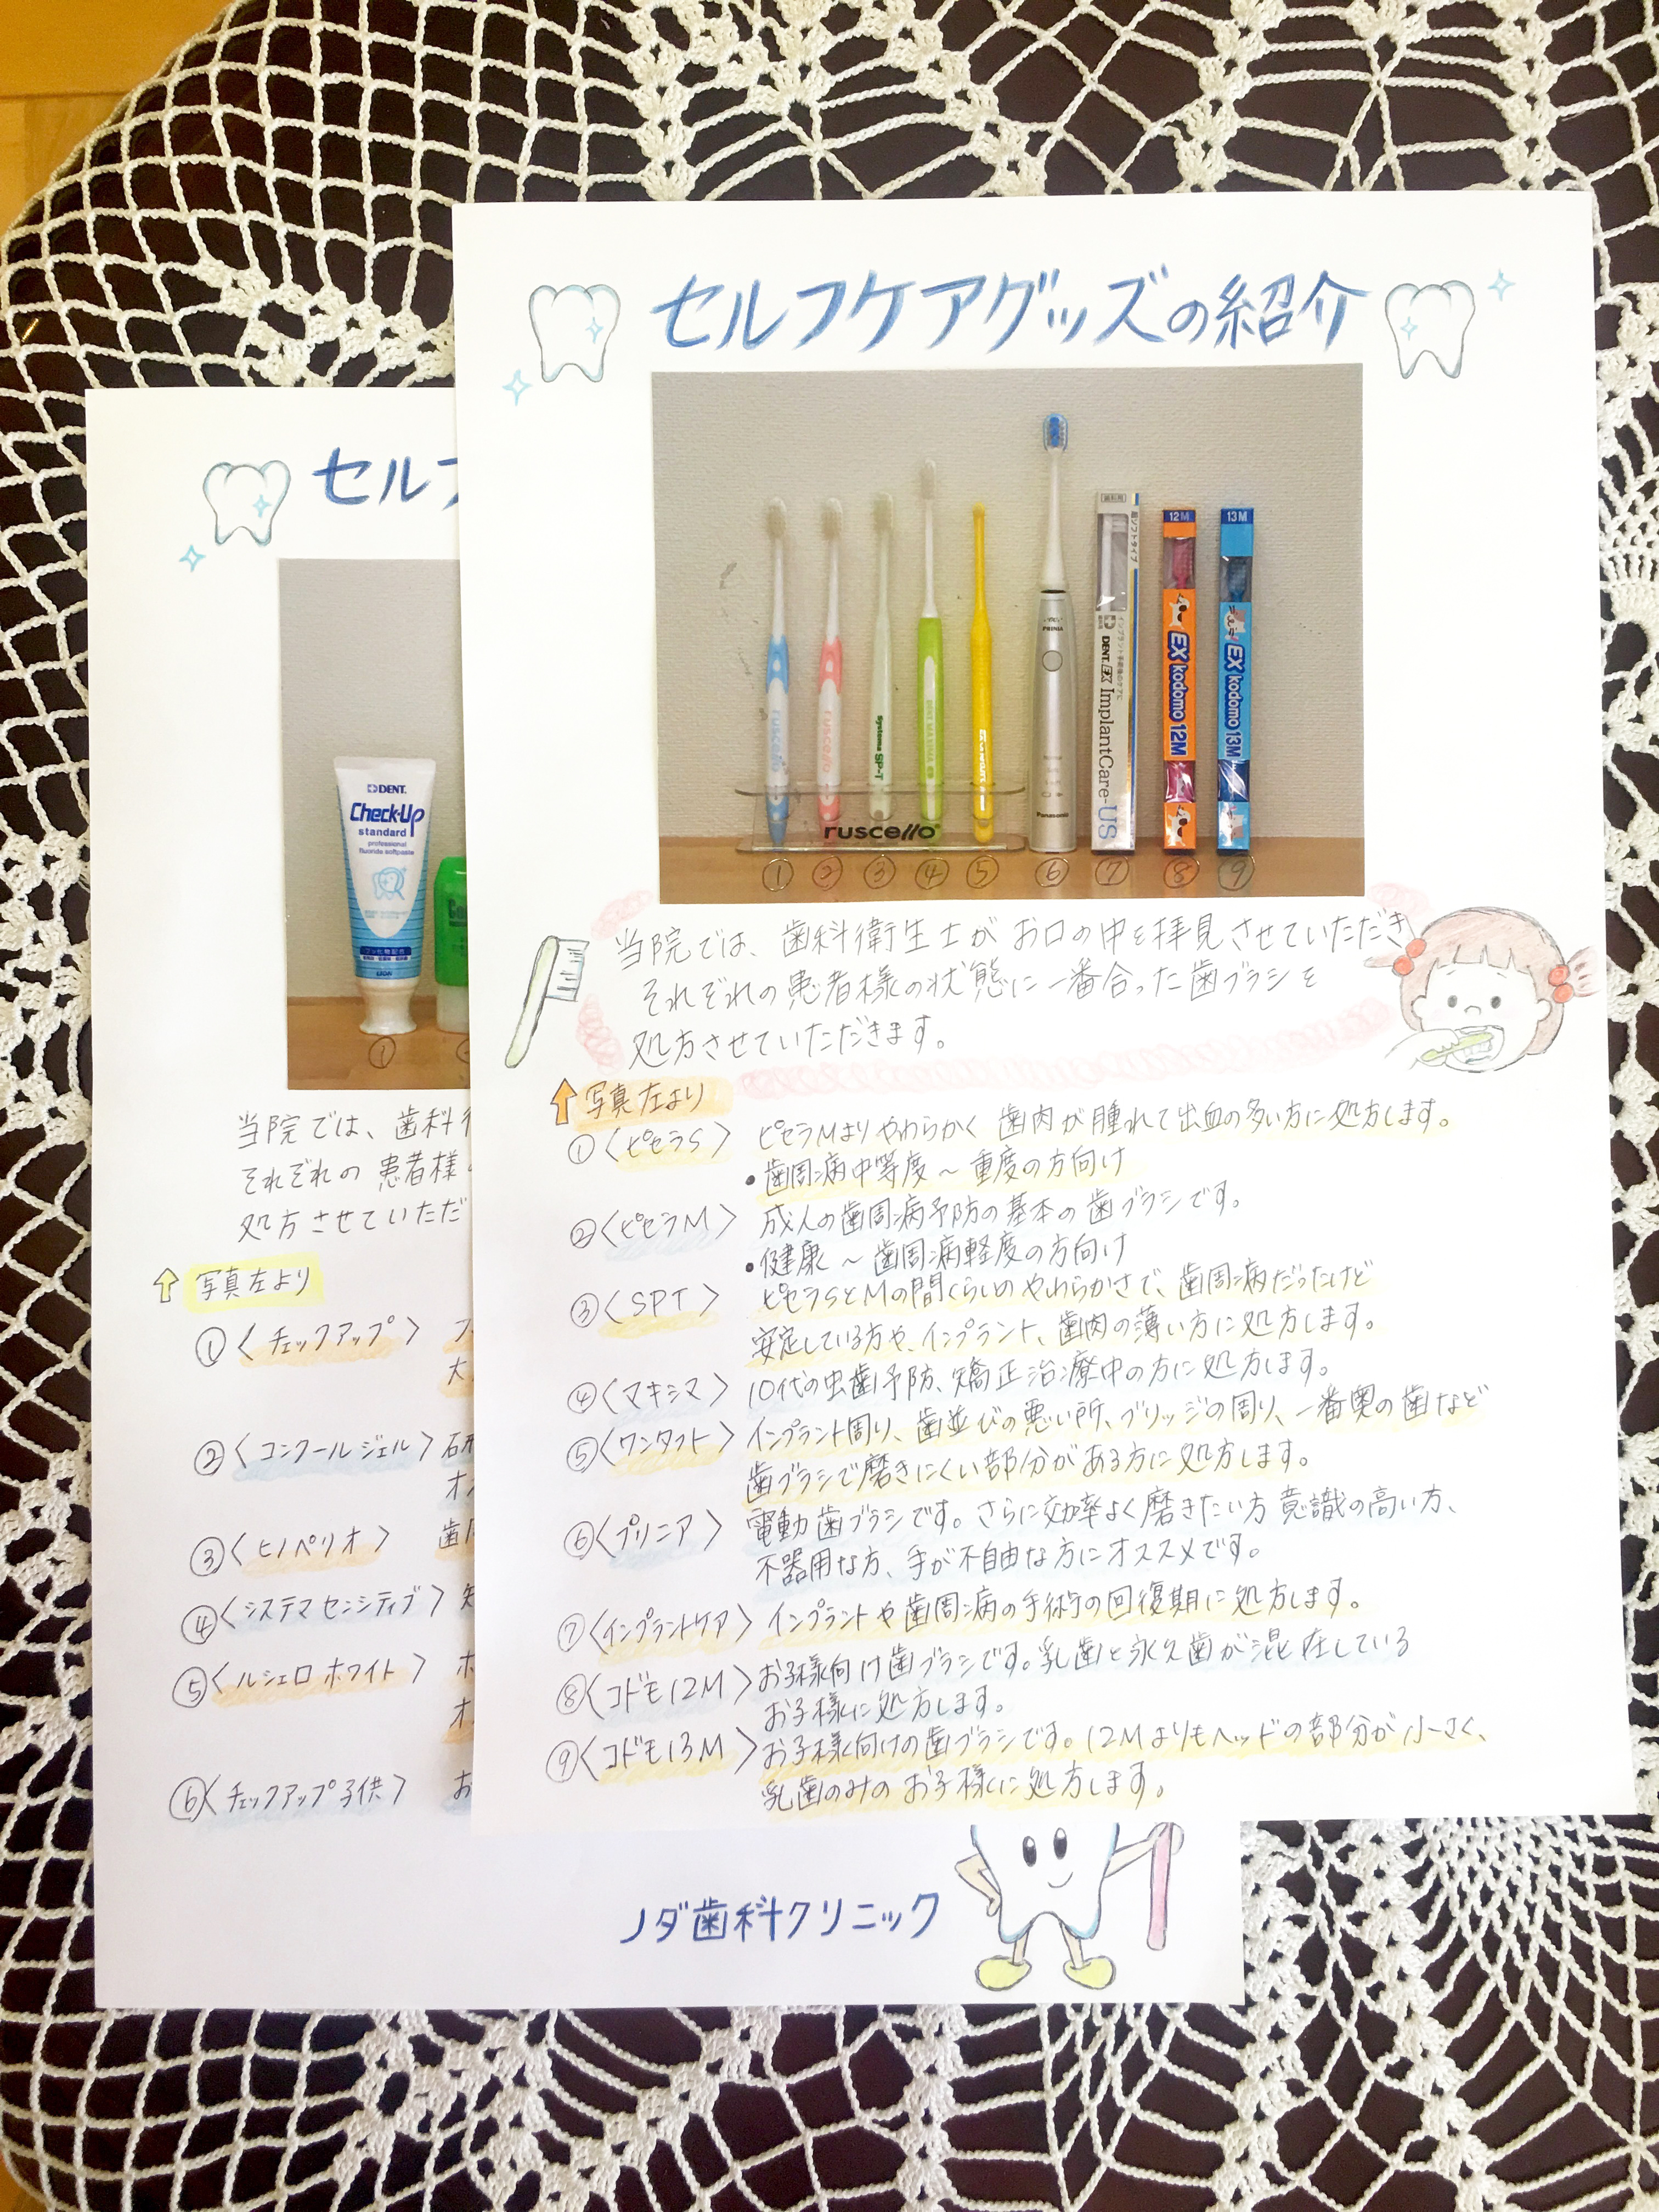 セルフケアグッズの紹介
12M
13M
歯科用
超ソフトタイプ
インプラント手術後のケアに
DENT.EX ImplantCare-US
EX kodomo 12M
EX kodomo 13M
ruscello
ruscello
Systema SP-T
PRINIA
Panasonic
ruscello
① ② ③ ④ ⑤ ⑥ ⑦ ⑧ ⑨
当院では、歯科衛生士がお口の中を拝見させていただき
それぞれの患者様の状態に一番合った歯ブラシを
処方させていただきます。
写真左より
①〈ピセラS〉 ピセラMよりやわらかく 歯肉が腫れて出血の多い方に処方します。
・歯周病中等度～重度の方向け
②〈ピセラM〉 成人の歯周病予防の基本の歯ブラシです。
・健康～歯周病軽度の方向け
③〈SPT〉 ピセラSとMの間くらいのやわらかさで、歯周病だったけど
安定している方や、インプラント、歯肉の薄い方に処方します。
④〈マキシマ〉 10代の虫歯予防、矯正治療中の方に処方します。
⑤〈ワンタフト〉 インプラント周り、歯並びの悪い所、ブリッジの周り、一番奥の歯など
歯ブラシで磨きにくい部分がある方に処方します。
⑥〈プリニア〉 電動歯ブラシです。さらに効率よく磨きたい方 意識の高い方、
不器用な方、手が不自由な方にオススメです。
⑦〈インプラントケア〉 インプラントや歯周病の手術の回復期に処方します。
⑧〈コドモ12M〉 お子様向け歯ブラシです。乳歯と永久歯が混在している
お子様に処方します。
⑨〈コドモ13M〉 お子様向けの歯ブラシです。12Mよりもヘッドの部分が小さく、
乳歯のみのお子様に処方します。
セルフ
DENT.
Check-Up
standard
professional
fluoride softpaste
LION
①
当院では、歯科
それぞれの患者様
処方させていただ
写真左より
①〈チェックアップ〉 フ
大
②〈コンクールジェル〉 研
オ
③〈ヒノペリオ〉 歯周
④〈システマ センシティブ〉 知
⑤〈ルシェロ ホワイト〉 ホ
オ
⑥〈チェックアップ子供〉 お
ノダ歯科クリニック